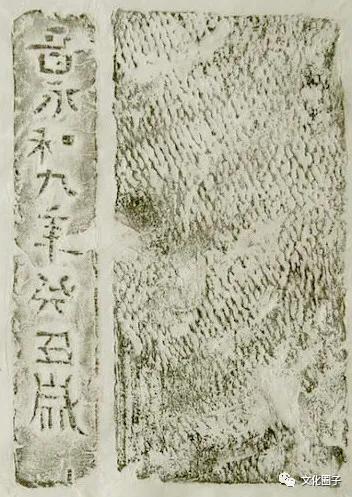 晋永和九年癸丑歲
文化圈子